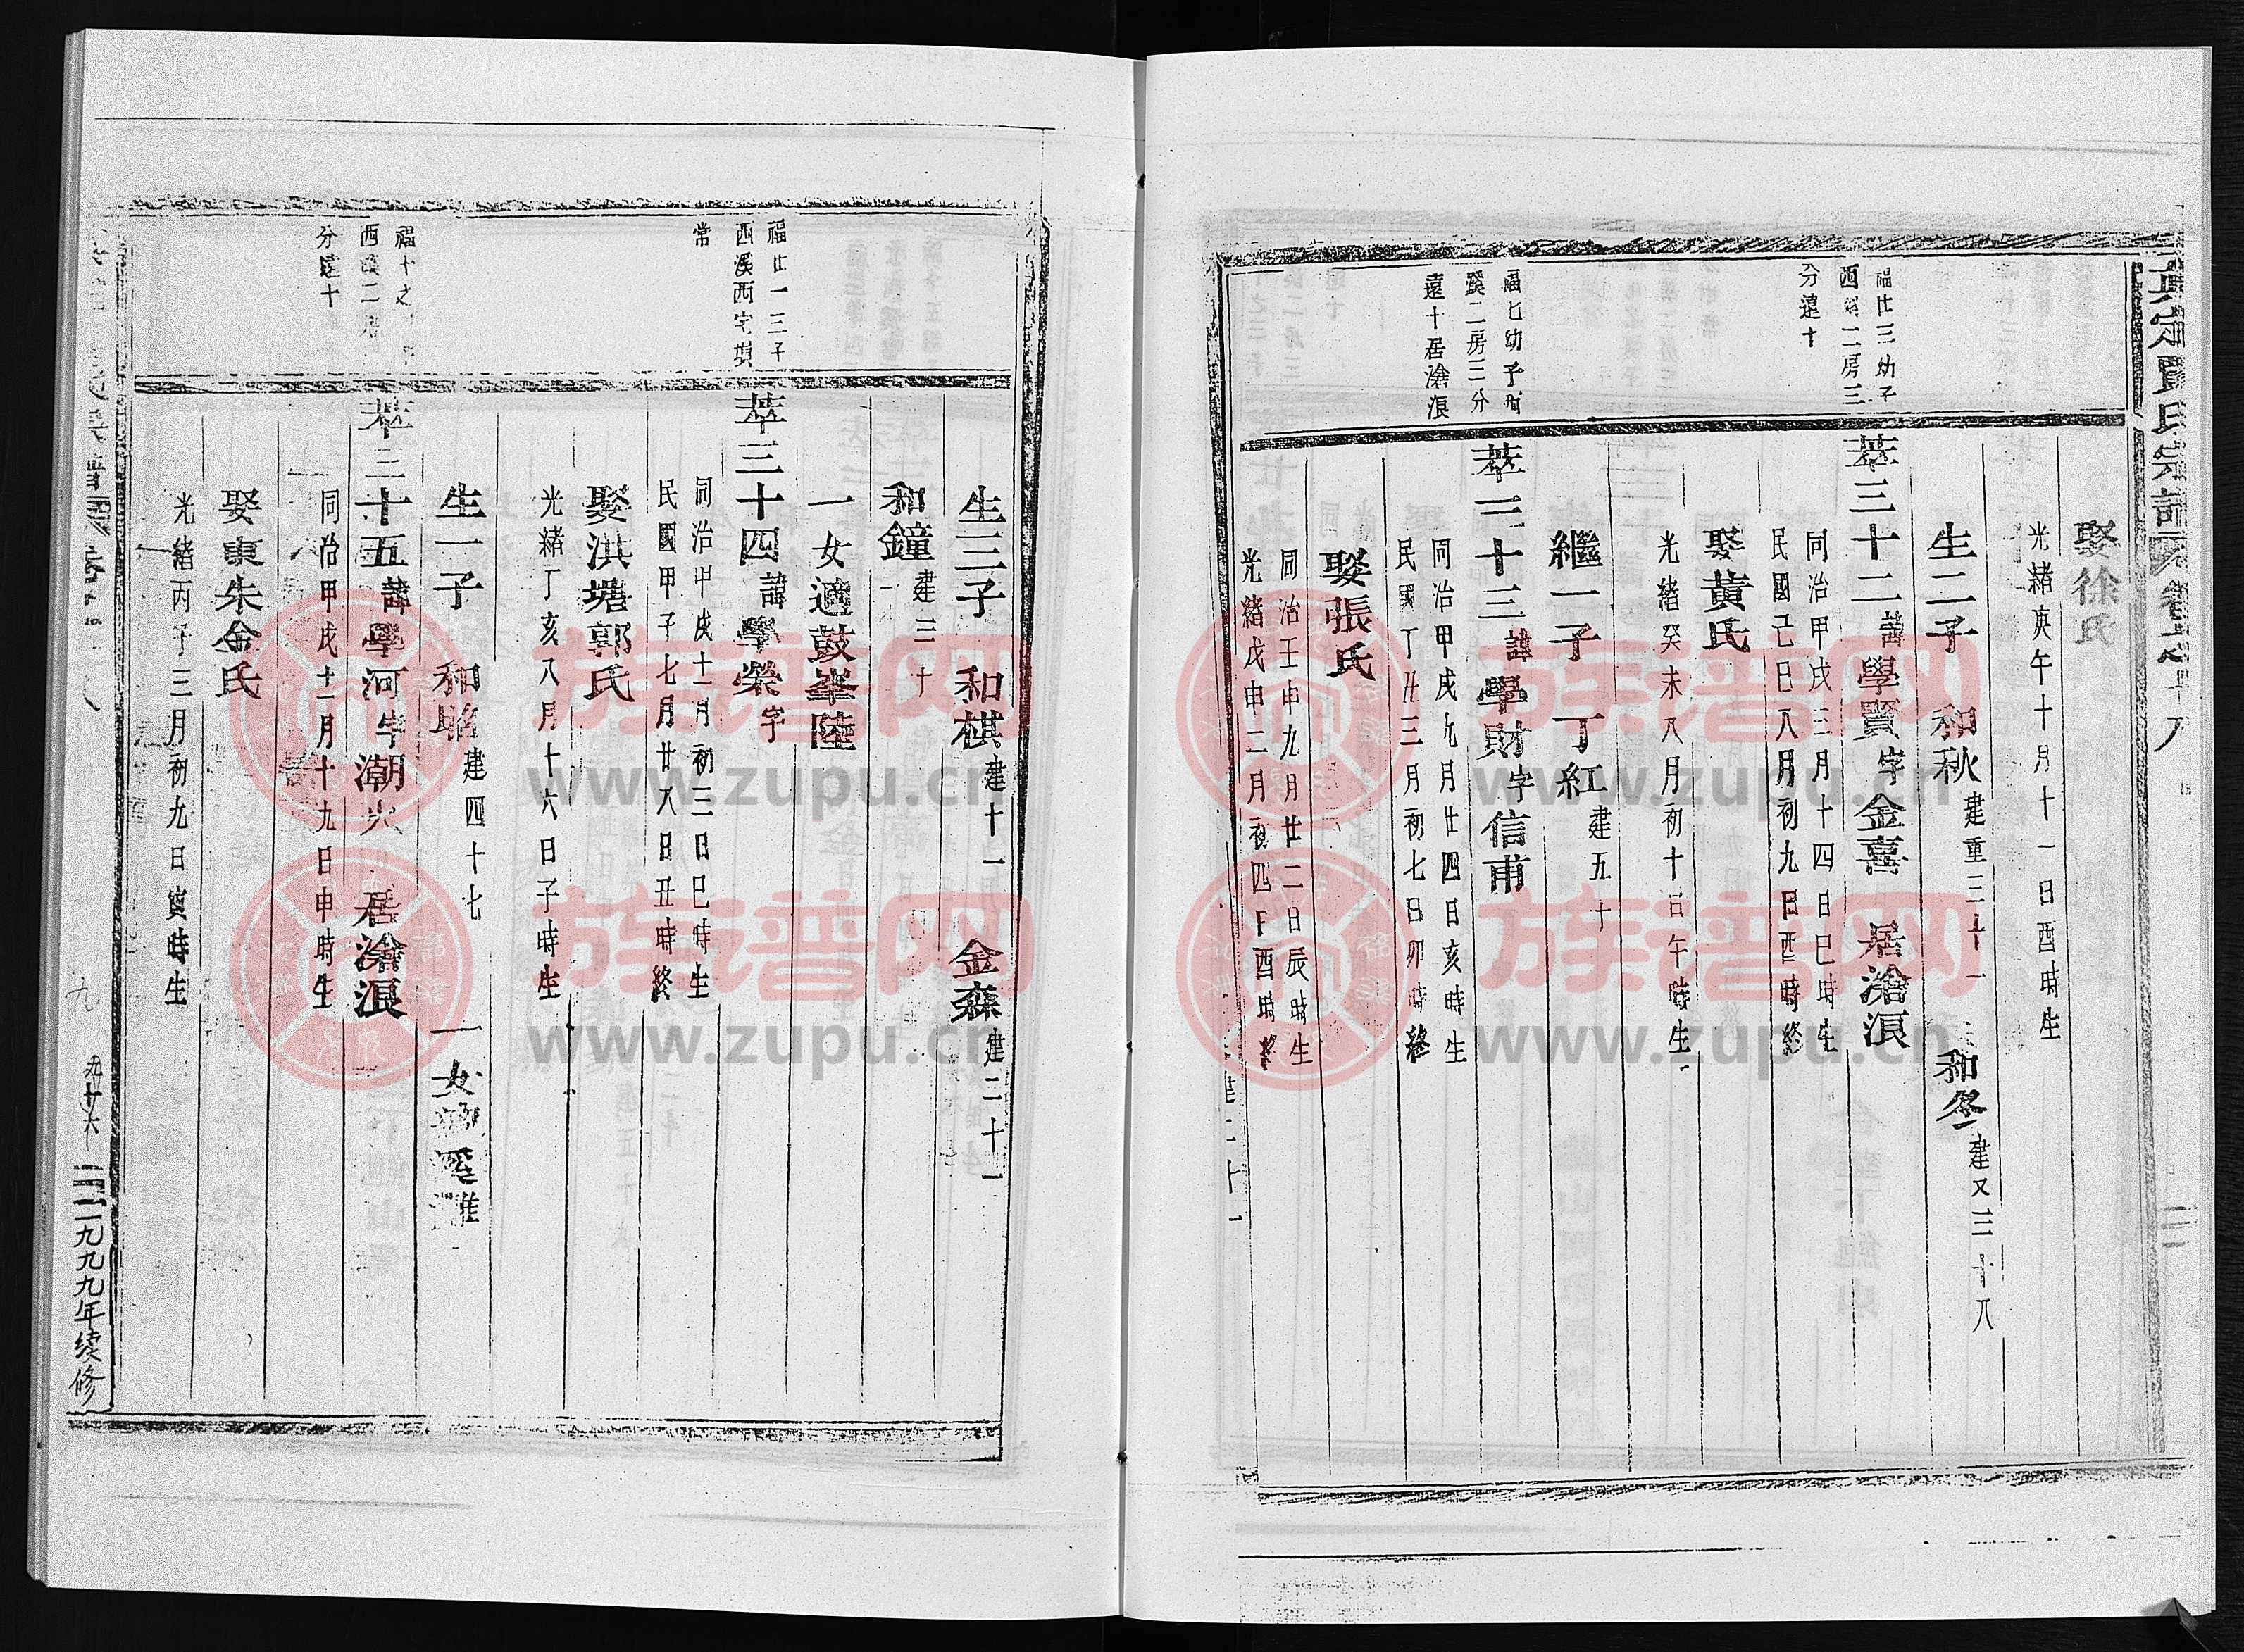 娶徐氏
光緒庚午十月十一日酉時生
生二子 和秋建重三十一 和冬建又三十八
福廿三幼子
西溪二房三
分遠十
萃三十二諱學寶字金喜 居滄浪
同治甲戌三月十四日巳時生
民國己巳八月初九日酉時終
娶黃氏
光緒癸未八月初十日午時生
繼一子 丁紅建五十
福七幼子西
溪二房三分
遠十居滄浪
萃三十三諱學財字信甫
同治甲戌九月廿四日亥時生
民國丁丑三月初七日卯時終
娶張氏
同治壬申九月廿二日辰時生
光緒戊申二月初四日酉時終
生三子 和棋建十一 金森建二十一
和鐘建三十
一女適鼓峯陸
福廿一三子
西溪西宅垻
常
萃三十四諱學榮字
同治甲戌十一月初三日巳時生
民國甲子七月廿八日丑時終
娶洪塘郭氏
光緒丁亥八月十六日子時生
生一子 和昭建四十七 一女
福十之子
西溪二房
分遠十
萃三十五諱學河字潮火 居滄浪
同治甲戌十一月十九日申時生
娶東朱金氏
光緒丙子三月初九日寅時生
九
九廿六
一九九九年续修
族谱网
www.zupu.cn
族谱网
www.zupu.cn
族谱网
www.zupu.cn
族谱网
www.zupu.cn